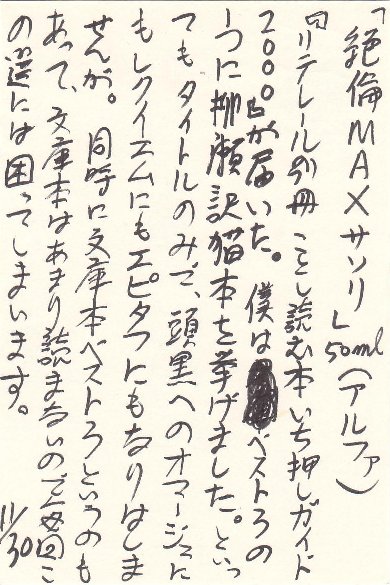 「絶倫MAXサソリ」50ml(アルファ)
『リテレール別冊 ことし読む本いち押しガイド
2000』が届いた。僕はベスト3の
一つに柳瀬訳猫本を挙げました。といっ
てもタイトルのみで、頭黒へのオマージュに
もレクイエムにもエピタフにもなりはしま
せんが。同時に文庫本ベスト3というのも
あって、文庫本はあまり読まないので毎回こ
の選には困ってしまいます。
11/30